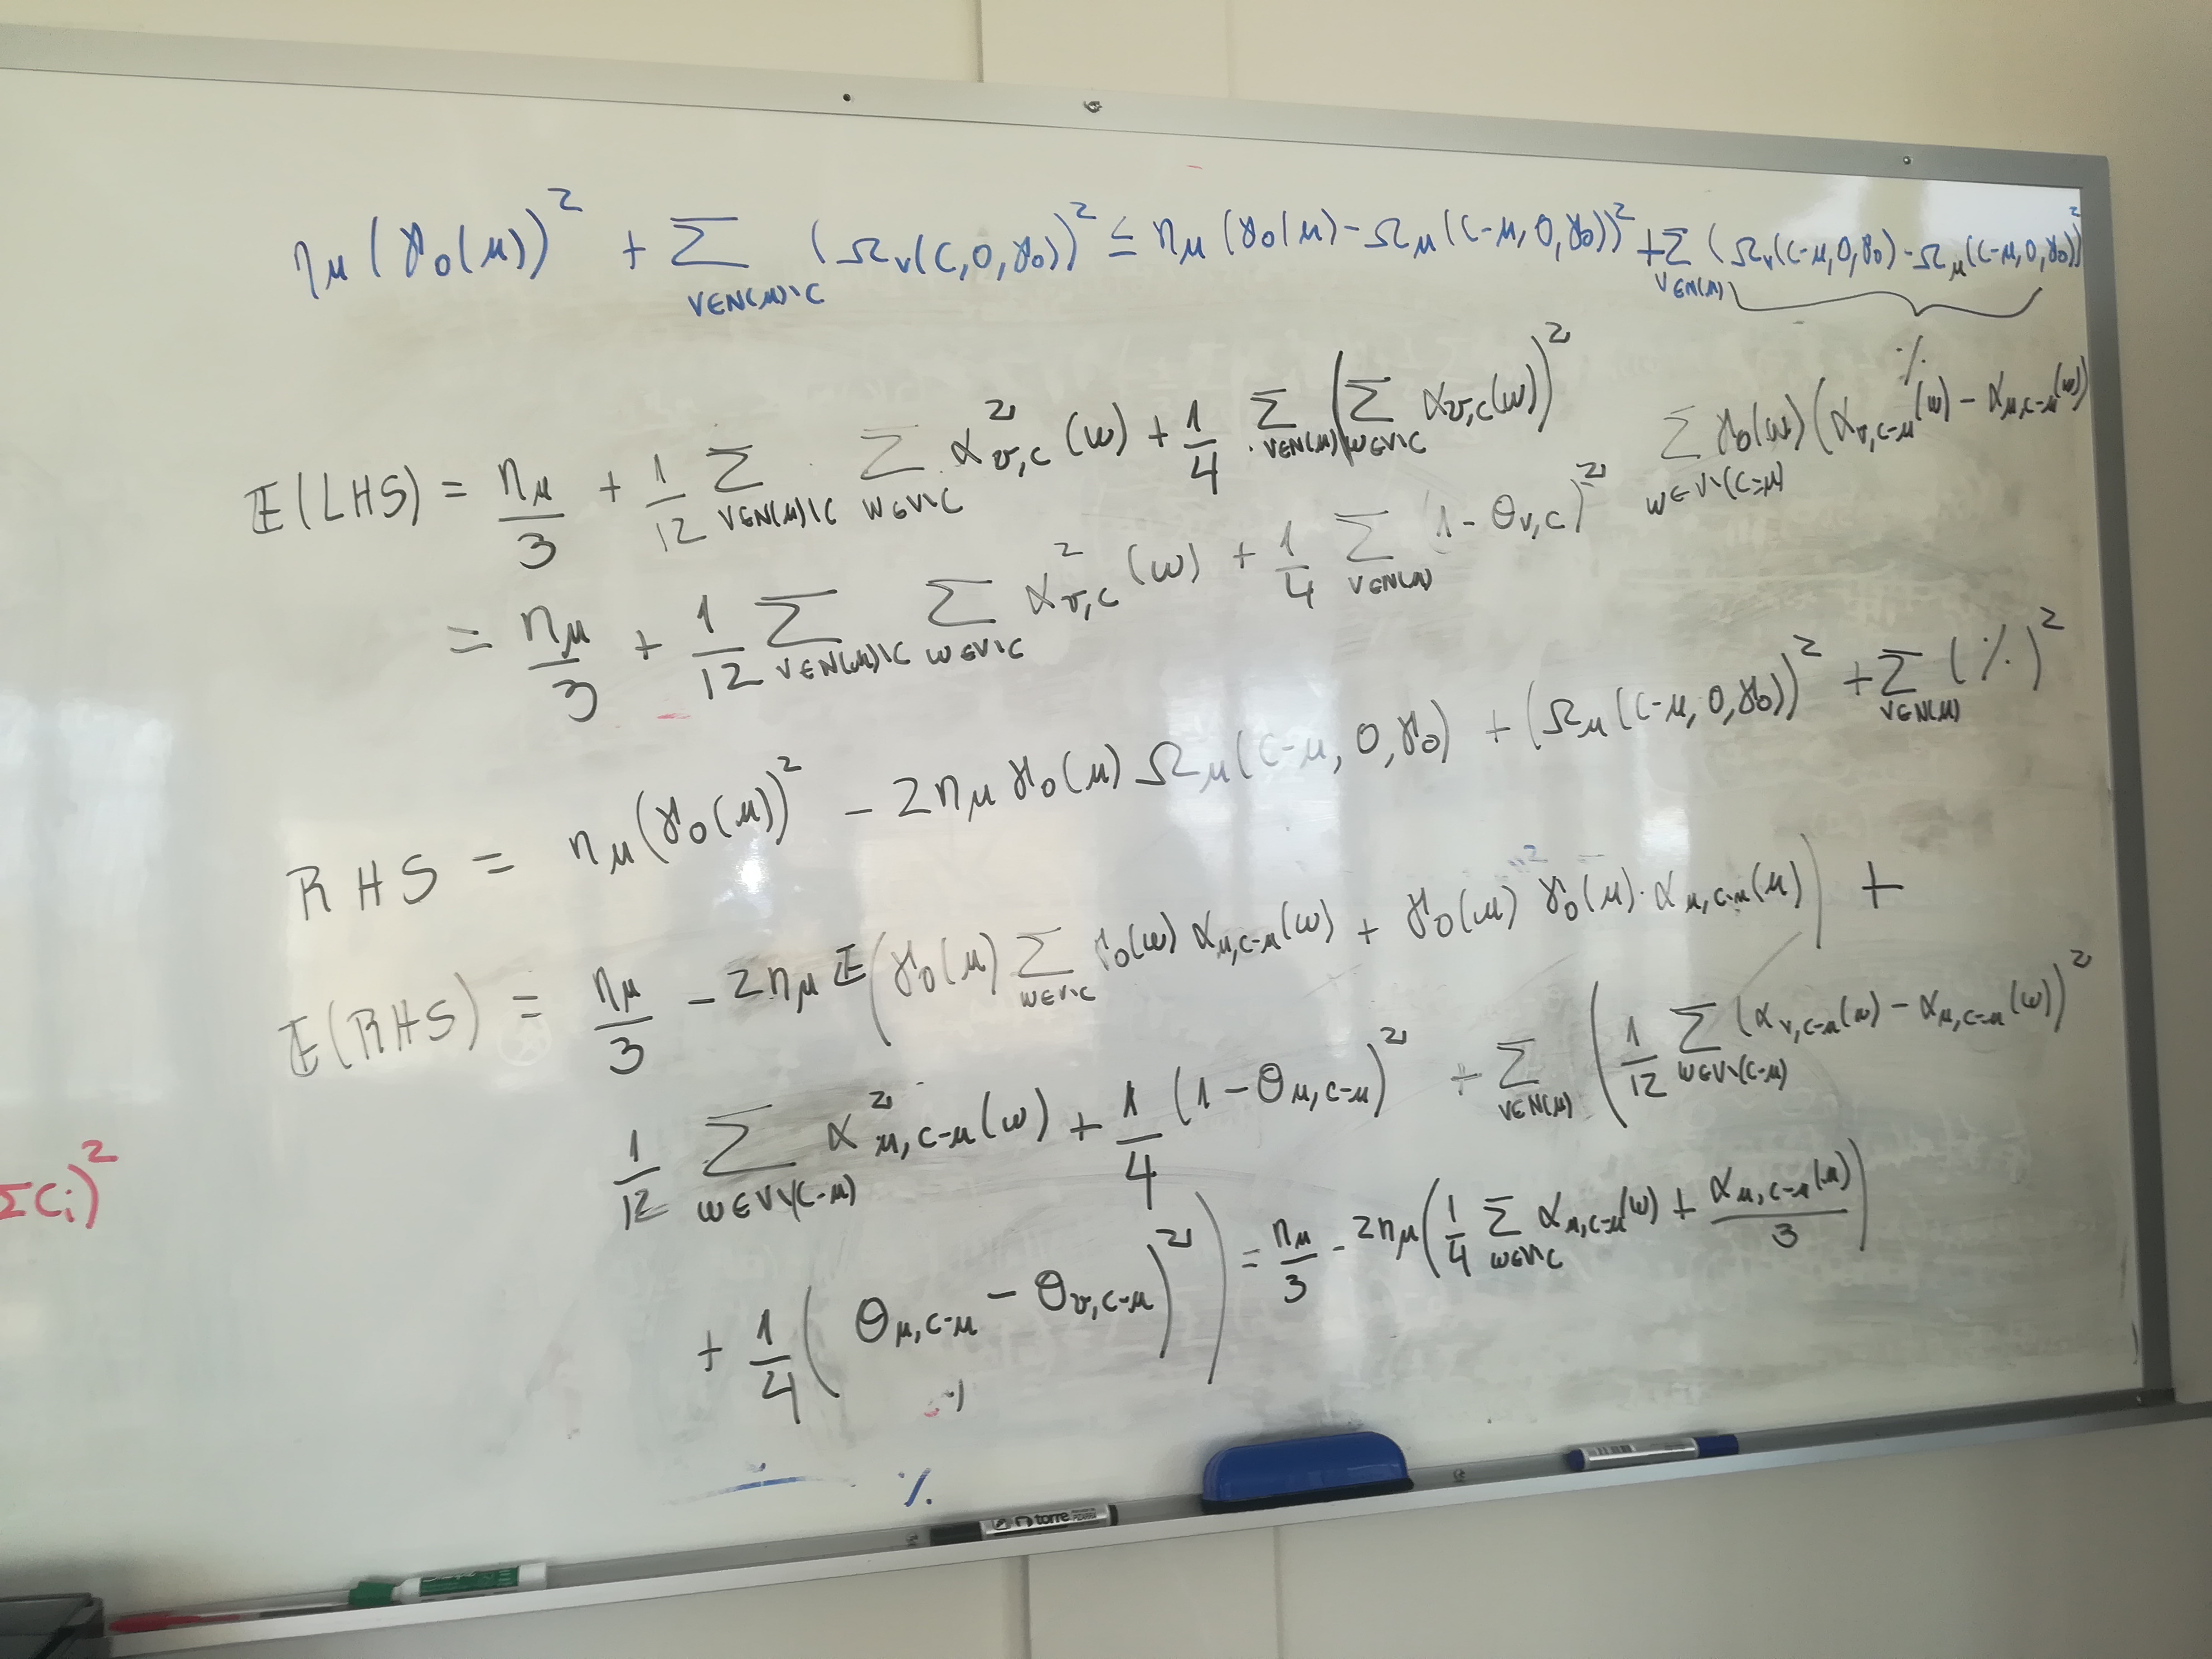 η_μ (γ_0(μ))^2 + Σ_{v∈N(μ)\C} (Ω_v(C,0,γ_0))^2 ≤ η_μ (γ_0(μ) - Ω_μ(C-μ,0,γ_0))^2 + Σ_{v∈N(μ)} (Ω_v(C-μ,0,γ_0) - Ω_μ(C-μ,0,γ_0))^2
٪
E(LHS) = η_μ/3 + 1/12 Σ_{v∈N(μ)\C} Σ_{w∈V\C} α^2_{v,C}(w) + 1/4 Σ_{v∈N(μ)} (Σ_{w∈V\C} α_{v,C}(w))^2
Σ_{w∈V\(C-μ)} γ_0(w) (α_{v,C-μ}(w) - α_{μ,C-μ}(w))
= η_μ/3 + 1/12 Σ_{v∈N(μ)\C} Σ_{w∈V\C} α^2_{v,C}(w) + 1/4 Σ_{v∈N(μ)} 1 - θ_{v,C})^2
RHS = η_μ (γ_0(μ))^2 - 2η_μ γ_0(μ) Ω_μ(C-μ,0,γ_0) + (Ω_μ(C-μ,0,γ_0))^2 + Σ_{v∈N(μ)} (٪)^2
E(RHS) = η_μ/3 - 2η_μ E(γ_0(μ) Σ_{w∈V\C} γ_0(w) α_{μ,C-μ}(w) + γ_0(μ) γ_0(μ)·α_{μ,C-μ}(μ)) +
1/12 Σ_{w∈V\(C-μ)} α^2_{μ,C-μ}(w) + 1/4 (1 - θ_{μ,C-μ})^2 + Σ_{v∈N(μ)} (1/12 Σ_{w∈V\(C-μ)} (α_{v,C-μ}(w) - α_{μ,C-μ}(w))^2
+ 1/4 (θ_{μ,C-μ} - θ_{v,C-μ})^2) = η_μ/3 - 2η_μ (1/4 Σ_{w∈V\C} α_{μ,C-μ}(w) + α_{μ,C-μ}(μ)/3)
Σc_i)^2
٪
torre